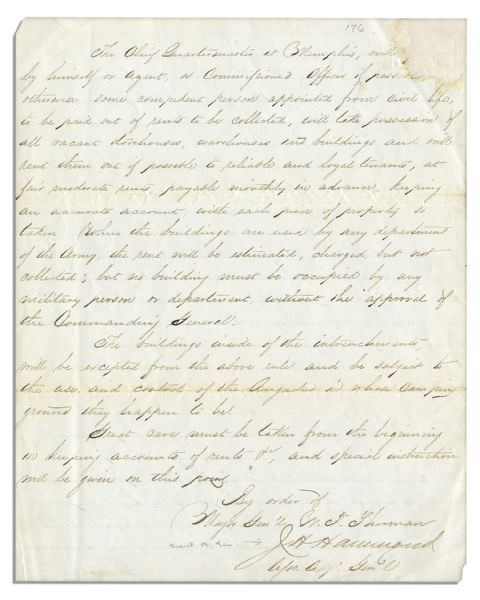 176
The Chief Quartermaster at Memphis, will
by himself or Agent, a Commissioned Officer if possible
otherwise, some competent person appointed from civil life,
to be paid out of rents to be collected, will take possession of
all vacant storehouses, warehouses and buildings and will
rent them out if possible to reliable and loyal tenants, at
fair moderate rents, payable monthly in advance, keeping
an accurate account, with each piece of property so
taken. When the buildings are used by any department
of the Army, the rent will be estimated, charged, but not
collected; but no building must be occupied by any
military person or department, without the approval of
the Commanding General.
The buildings inside of the intrenchments
will be excepted from the above rule and be subject to
the use and control of the Brigades in whose camping
ground they happen to be.
Great care must be taken from the beginning
in keeping accounts of rents &c, and special instruction
will be given on this point.
By order of
Major Gen'l W. T. Sherman
J H Hammond
Asst. Adj. Gen'l